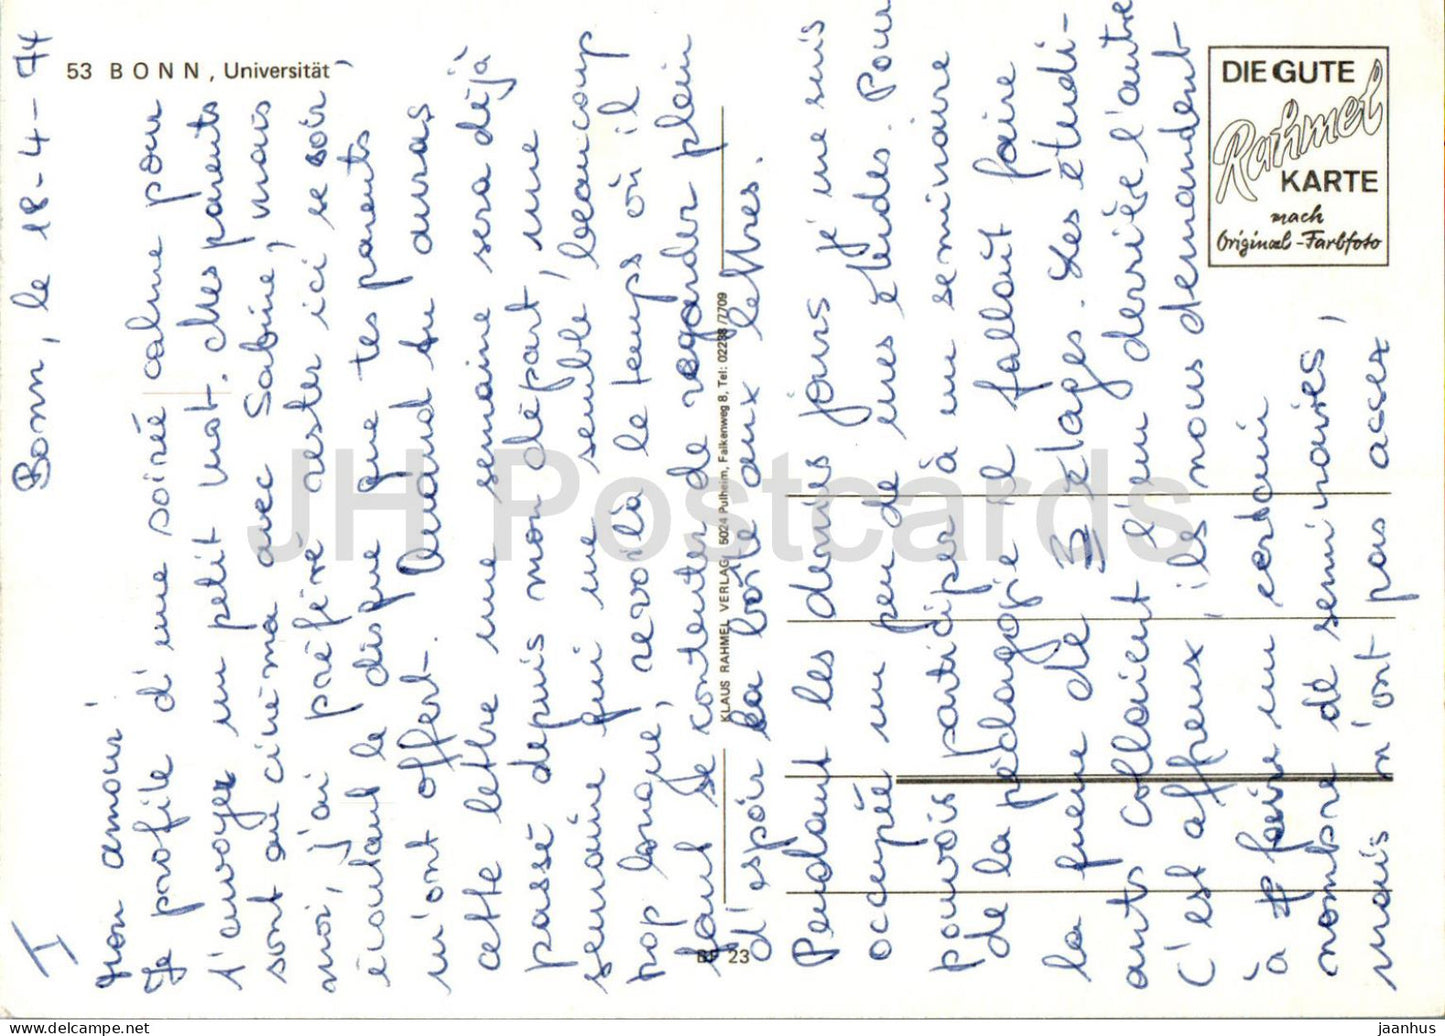 53 BONN, Universität
DIE GUTE
Rahmel
KARTE
nach
Original-Farbfoto
KLAUS RAHMEL VERLAG, 5024 Pulheim, Falkenweg 8, Tel: 02238/7709
BF 23
I
Bonn, le 18-4-74
Mon amour,
Je profite d'une soirée calme pour
t'envoyer un petit mot. Mes parents
sont au cinéma avec Sabine, mais
moi, j'ai préféré rester ici ce soir,
écoutant le disque que tes parents
m'ont offert. Quand tu auras
cette lettre une semaine sera déjà
passé depuis mon départ, une
semaine qui me semble beaucoup
trop longue, revoilà le temps où il
faut se contenter de regarder plein
d'espoir la boîte aux lettres.
Pendant les derniers jours je me suis
occupée un peu de mes études. Pour
pouvoir participer à un seminaire
de la pédagogie il fallait faire
la queue de 3 étages. Les étudi-
ants collaient l'un derrière l'autre
C'est affreux, ils nous demandent
à faire un certain
nombre de seminaires,
mais n'ont pas assez
JH Postcards
jaanhus — www.hippostcard.com